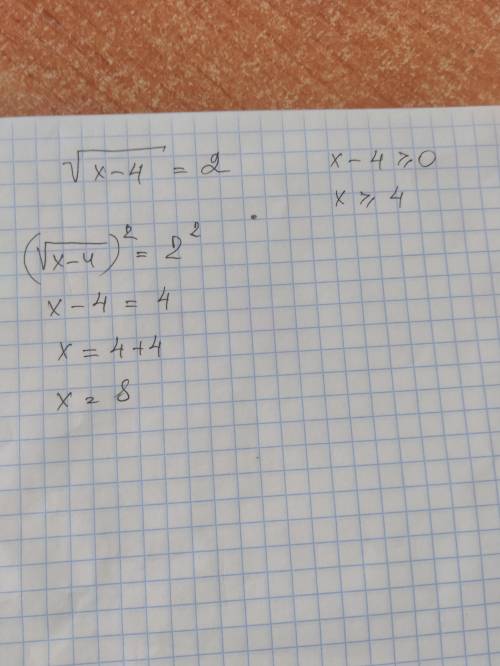 √(x-4) = 2
x-4 ⩾ 0
x ⩾ 4
(√(x-4))² = 2²
x-4 = 4
x = 4+4
x = 8